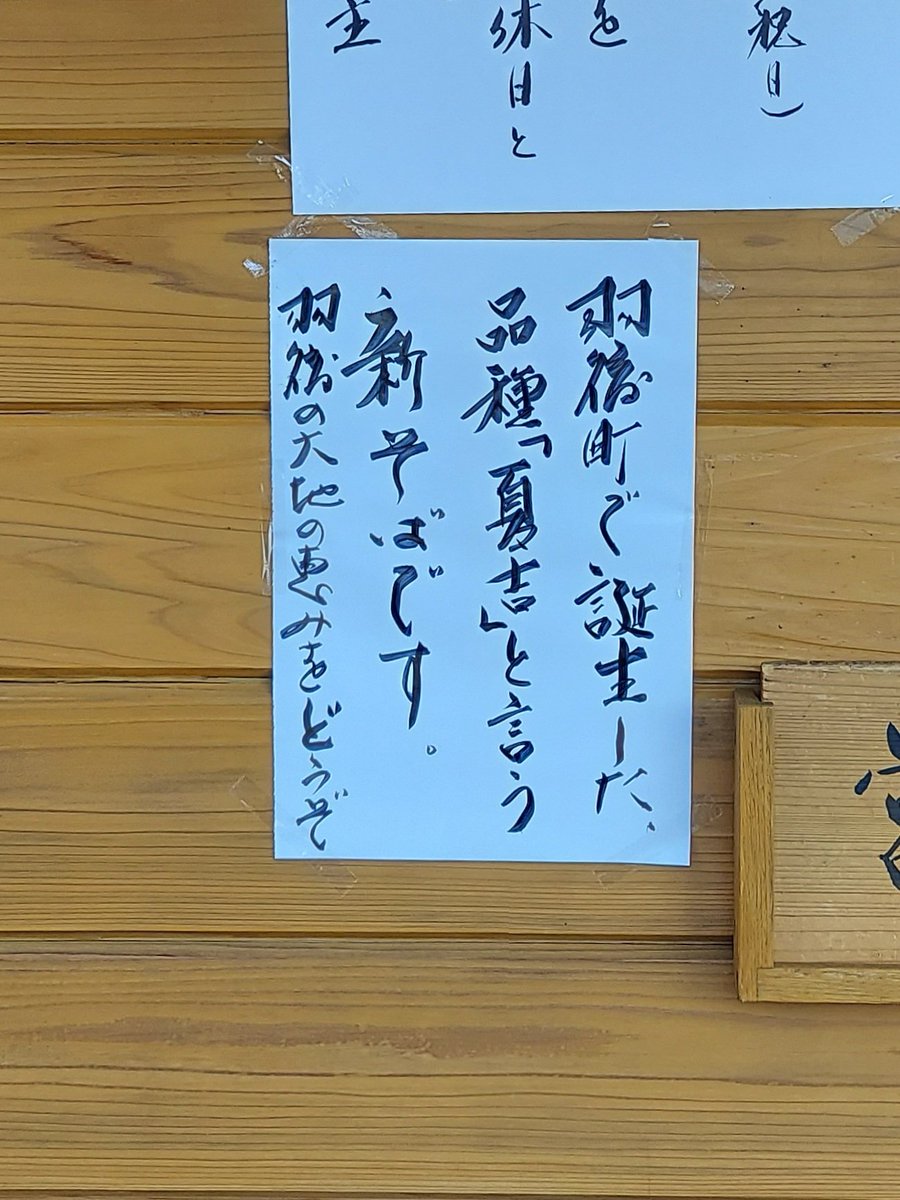 祝日）
を
休日と
主
羽後町で誕生した、
品種「夏吉」と言う
新そばです。
羽後の大地の恵みをどうぞ